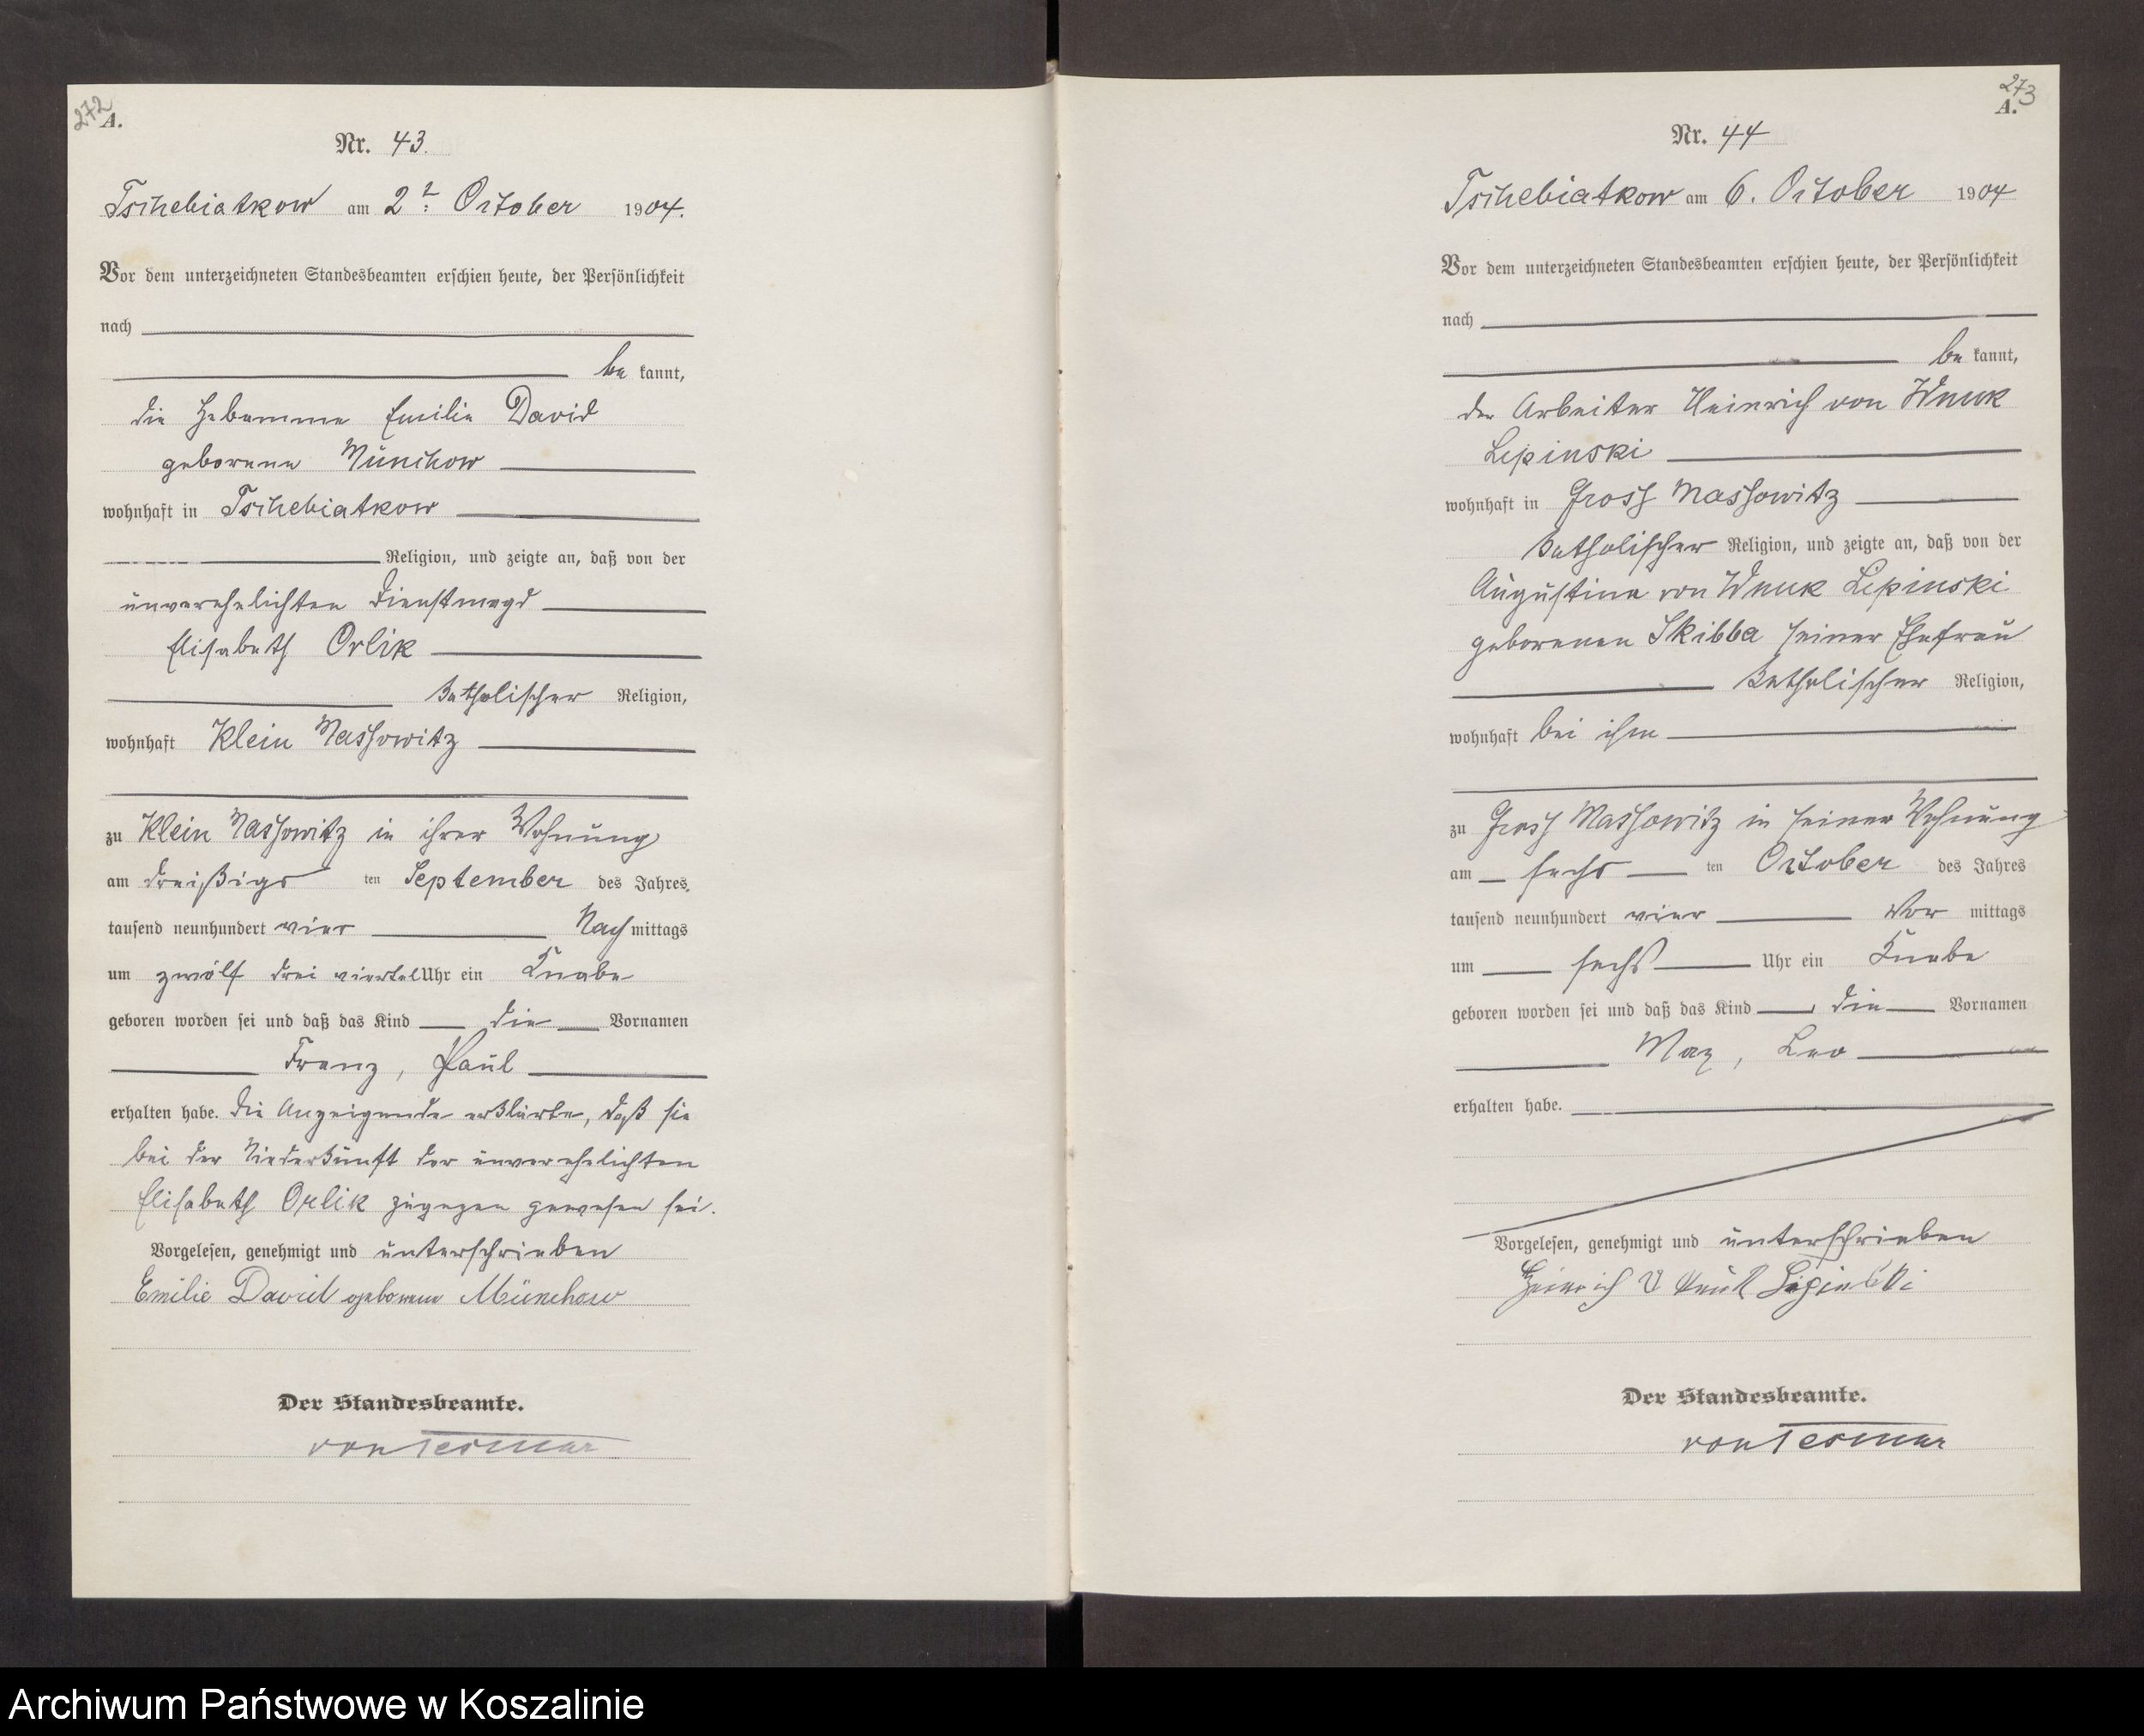 272
A.
Nr. 43.
Tschebiatkow am 2ᵗ: October 1904.
Vor dem unterzeichneten Standesbeamten erschien heute, der Persönlichkeit
nach
be kannt,
die Hebamme Emilie David
geborene Münchow
wohnhaft in Tschebiatkow
Religion, und zeigte an, daß von der
unverehelichten Dienstmagd
Elisabeth Orlik
katholischer Religion,
wohnhaft Klein Massowitz
zu Klein Massowitz in ihrer Wohnung
am dreißigs ten September des Jahres
tausend neunhundert vier Nach mittags
um zwölf drei viertel Uhr ein Knabe
geboren worden sei und daß das Kind die Vornamen
Franz, Paul
erhalten habe. Die Anzeigende erklärte, daß sie
bei der Niederkunft der unverehelichten
Elisabeth Orlik zugegen gewesen sei.
Vorgelesen, genehmigt und unterschrieben
Emilie David geborene Münchow
Der Standesbeamte.
von Tesmar
273
A.
Nr. 44
Tschebiatkow am 6. October 1904
Vor dem unterzeichneten Standesbeamten erschien heute, der Persönlichkeit
nach
be kannt,
der Arbeiter Heinrich von Wnuk
Lipinski
wohnhaft in Gross Massowitz
katholischer Religion, und zeigte an, daß von der
Augustine von Wnuk Lipinski
geborenen Skibba seiner Ehefrau
katholischer Religion,
wohnhaft bei ihm
zu Gross Massowitz in seiner Wohnung
am sechs ten October des Jahres
tausend neunhundert vier Vor mittags
um sechs Uhr ein Knabe
geboren worden sei und daß das Kind die Vornamen
Max, Leo
erhalten habe.
Vorgelesen, genehmigt und unterschrieben
Heinrich v Wnuk Lipinski
Der Standesbeamte.
von Tesmar
Archiwum Państwowe w Koszalinie